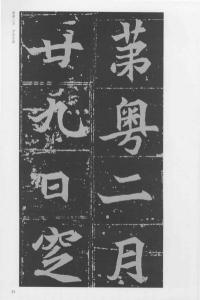 苐粤二月
廿九日窆